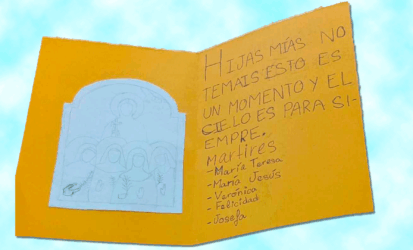 HIJAS MÍAS NO
TEMAIS ESTO ES
UN MOMENTO Y EL
CIELO ES PARA SI-
EMPRE.
Martires
-María Teresa
-María Jesús
-Verónica
-Felicidad
-Josefa